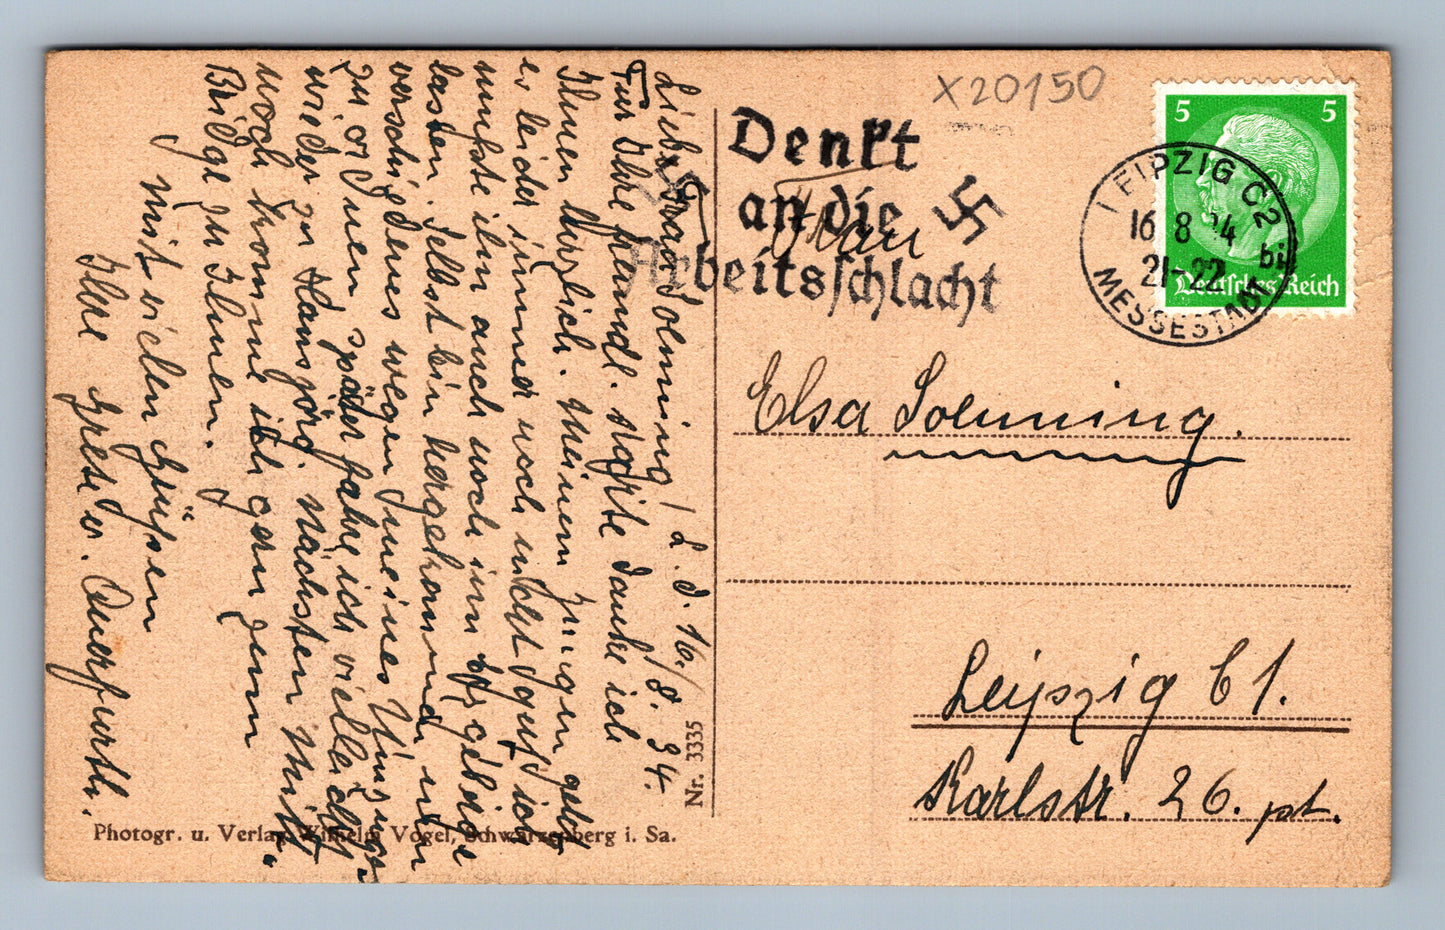 X20150
Denkt
an die
Arbeitsschlacht
5 5
Deutsches Reich
LEIPZIG C2
16 8 34
21-22
bi
MESSESTADT
Frau
Elsa Soenning.
Leipzig C1.
Karlstr. 26. pt.
Nr. 3335
Photogr. u. Verlag Wilhelm Vogel, Schwarzenberg i. Sa.
L. d. 16./8. 34.
Liebe Frau Soenning!
Für Ihre freundl. Karte danke ich
Ihnen herzlich. Meinem Jungen geht
es leider immer noch nicht gut, ich
mußte ihn auch noch im
lassen. Selbst bin hergekommen um
verschiedenes wegen meines Umzuges
zu ordnen, später fahre ich vielleicht
wieder zu Hansjörg. Nächsten Mittw.
noch komme ich gern zum
zu Ihnen.
Mit vielen Grüßen
Ihre Grete v. Querfurth.